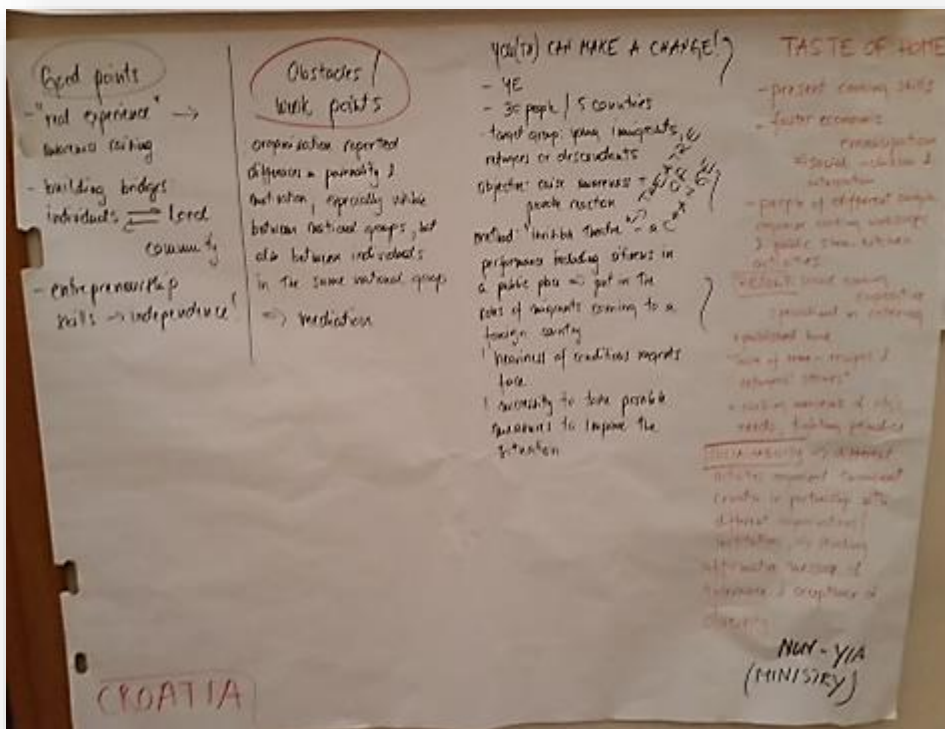 Good points
- "real experience" →
awareness raising
- building bridges
individuals ⇌ local
community
- entrepreneurship
skills → independence!
Obstacles /
weak points
organisation reported
differences in &
motivation, especially visible
between national groups, but
also between individuals
in the same national group
=> mediation
YOU(TH) CAN MAKE A CHANGE!
- YE
- 30 people / 5 countries
- target group: young immigrants,
refugees or descendents
objective: raise awareness
provoke reaction
method: Theatre" - a
performance including citizens in
a public place => put in the
roles of immigrants coming to a
foreign country
! heaviness of conditions migrants
face
! necessity to take possible
measures to improve the
situation
TASTE OF HOME
- present cooking skills
- foster economic
emancipation
social inclusion &
integration
- people of different origin
organise cooking workshops
& public kitchen
activities
specialised in catering
published book
"Taste of home - recipes &
refugees' stories"
needs, fighting prejudice
=> different
Croatia in partnership with
different organisations /
institutions, sending
affirmative message of
tolerance & acceptance of
diversity
NON-YIA
(MINISTRY)
CROATIA